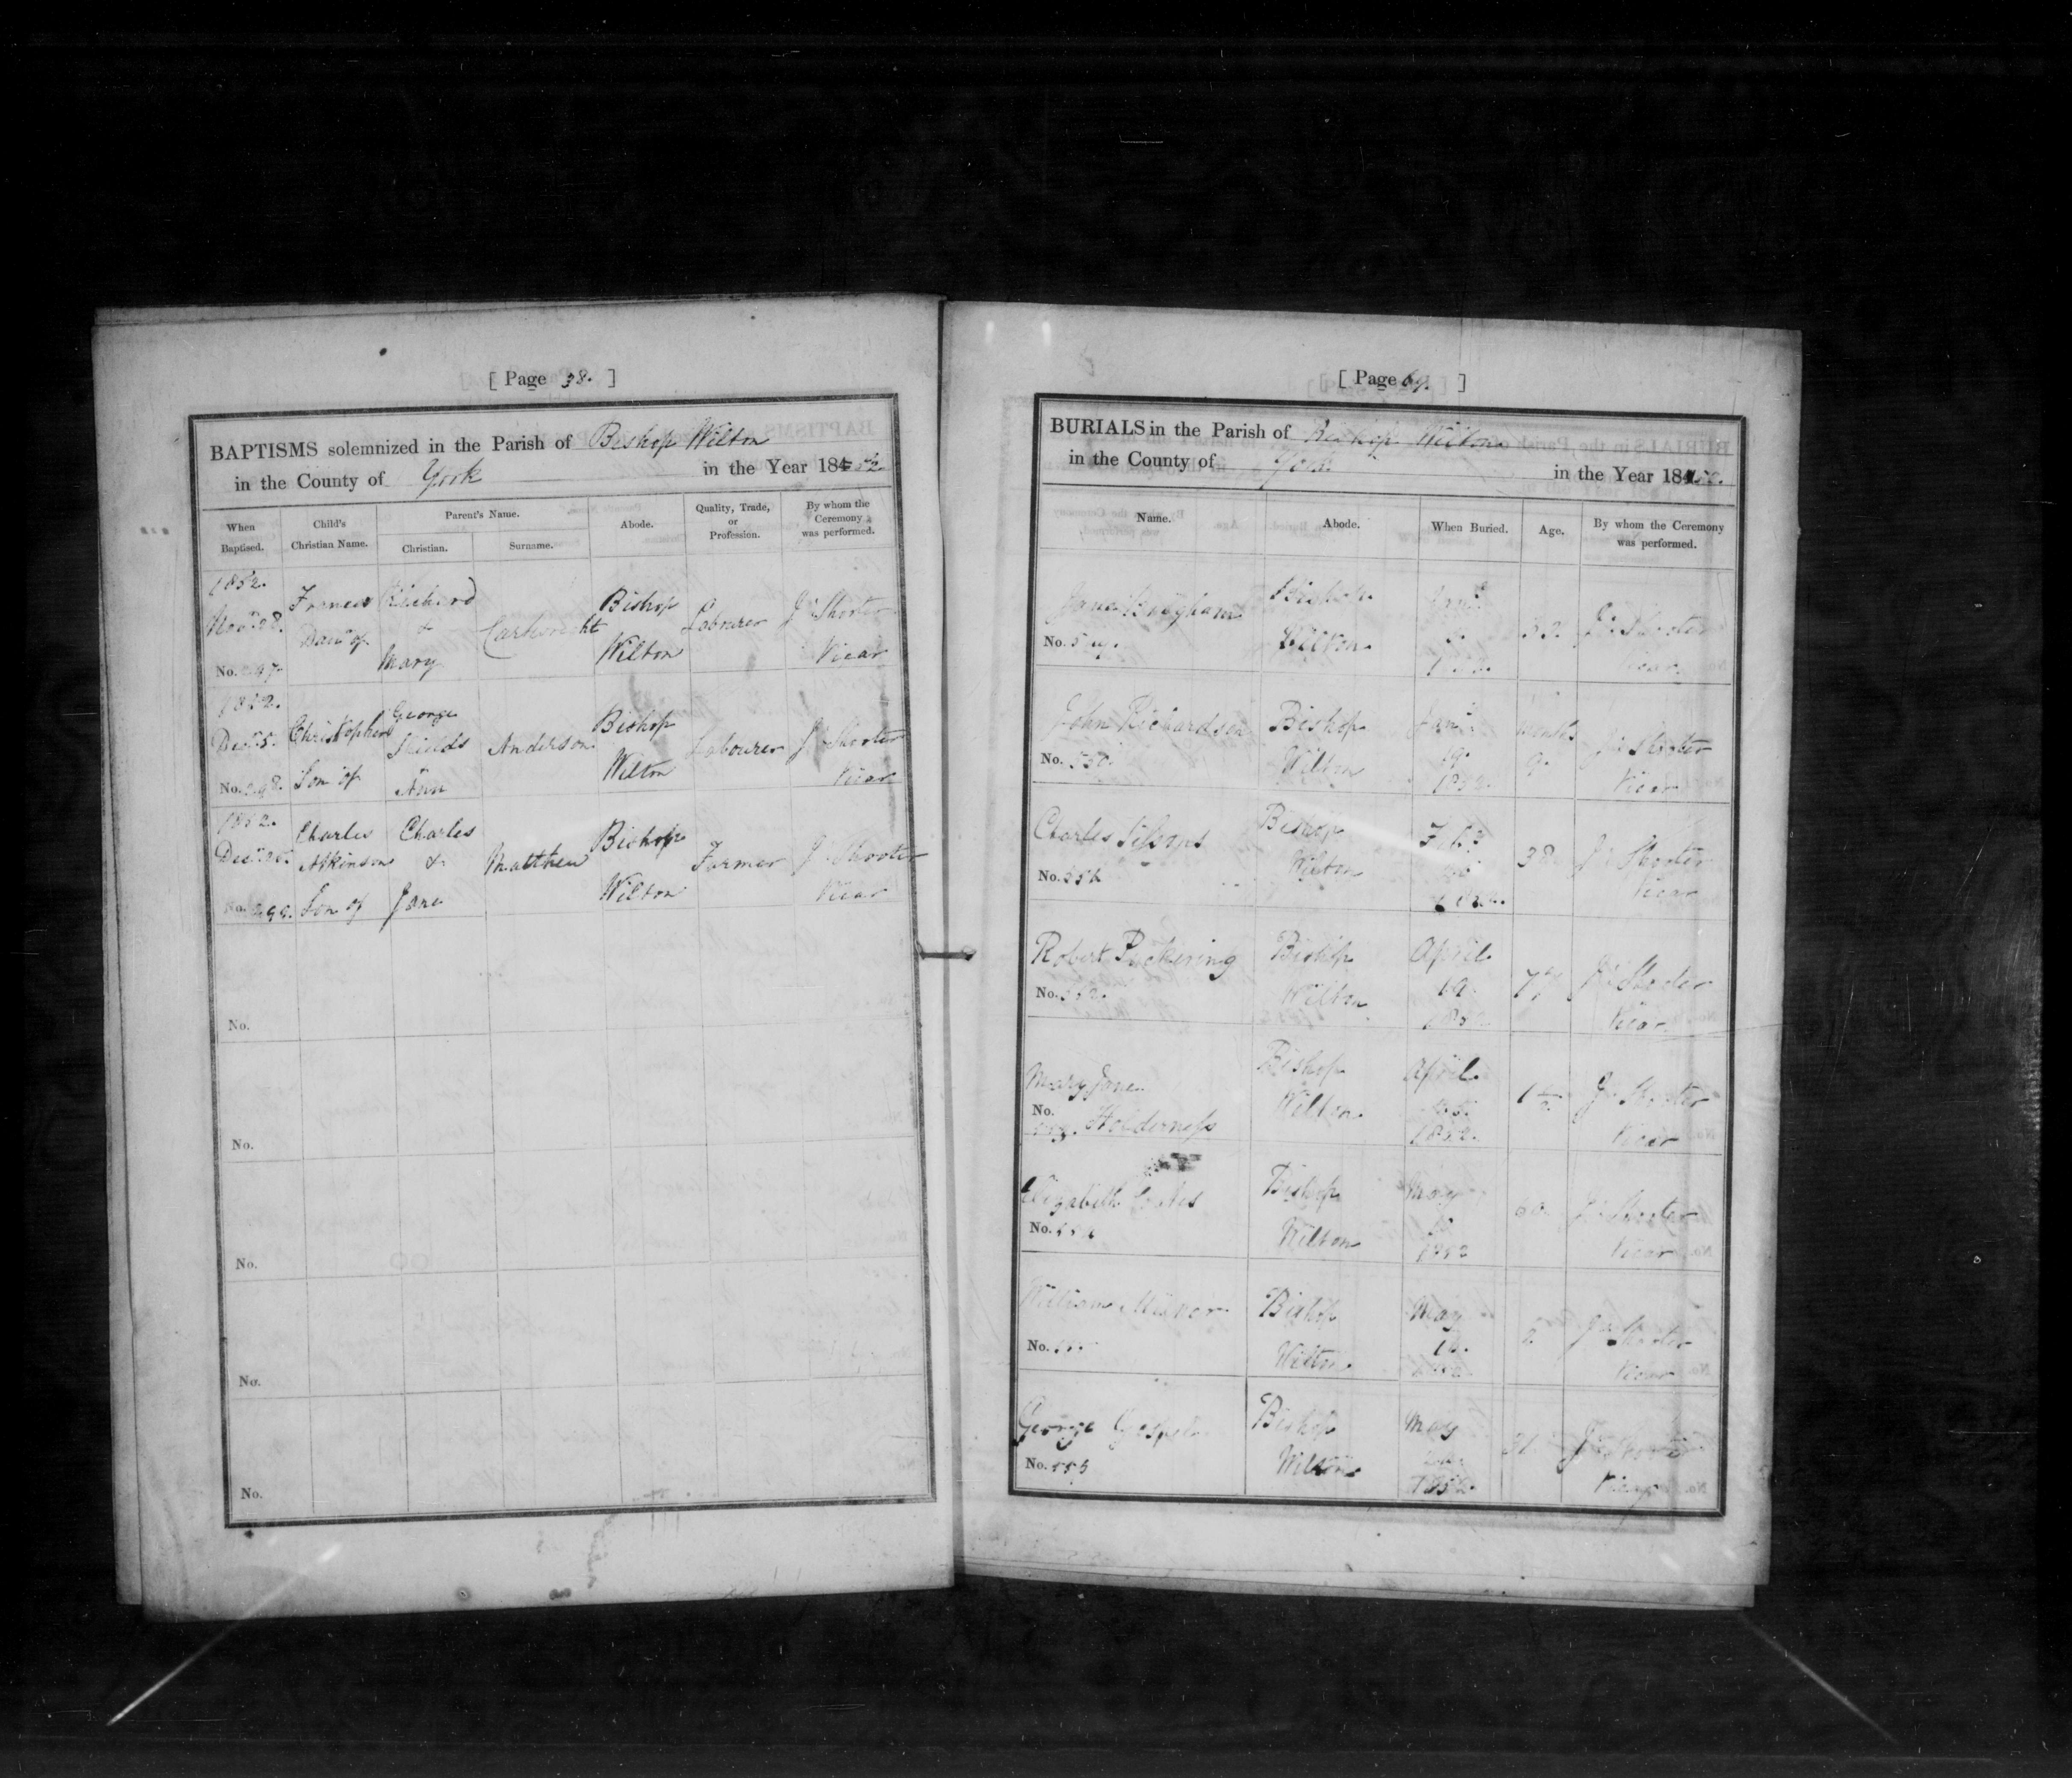 [ Page 38. ]
BAPTISMS solemnized in the Parish of Bishop Wilton
in the County of York in the Year 1852
When Baptised.
Child's Christian Name.
Parent's Name.
Christian.
Surname.
Abode.
Quality, Trade, or Profession.
By whom the Ceremony was performed.
1852. Novr. 28. No. 297.
Frances Daur. of
Richard & Mary
Cartwright
Bishop Wilton
Labourer
Jn. Shooter Vicar
1852. Decr. 5. No. 298.
Christopher Son of
George Shields Ann
Anderson
Bishop Wilton
Labourer
Jn. Shooter Vicar
1852. Decr. 25. No. 299.
Charles Atkinson Son of
Charles & Jane
Matthew
Bishop Wilton
Farmer
Jn. Shooter Vicar
No.
No.
No.
No.
No.
[ Page 69. ]
BURIALS in the Parish of Bishop Wilton
in the County of York in the Year 1852.
Name.
Abode.
When Buried.
Age.
By whom the Ceremony was performed.
Jane
No. 549.
Bishop Wilton
Jany. 1852.
Jn. Shooter Vicar
John Richardson
No. 550.
Bishop Wilton
Jany. 19. 1852.
Months 9.
Jn. Shooter Vicar
Charles Sissons
No. 551
Bishop Wilton
Feby. 1852.
38
Jn. Shooter Vicar
Robert Puckering
No. 552.
Bishop Wilton
April 19. 1852
77
Jn. Shooter Vicar
Mary Jane
No. 553. Holderness
Bishop Wilton
April 25. 1852.
1 1/2
Jn. Shooter Vicar
Elizabeth Coates
No. 554
Bishop Wilton
May 1852
60
Jn. Shooter Vicar
William Milner
No. 555
Bishop Wilton
May 1852.
2
Jn. Shooter Vicar
George Gospel
No. 556
Bishop Wilton
May 1852.
Jn. Shooter Vicar